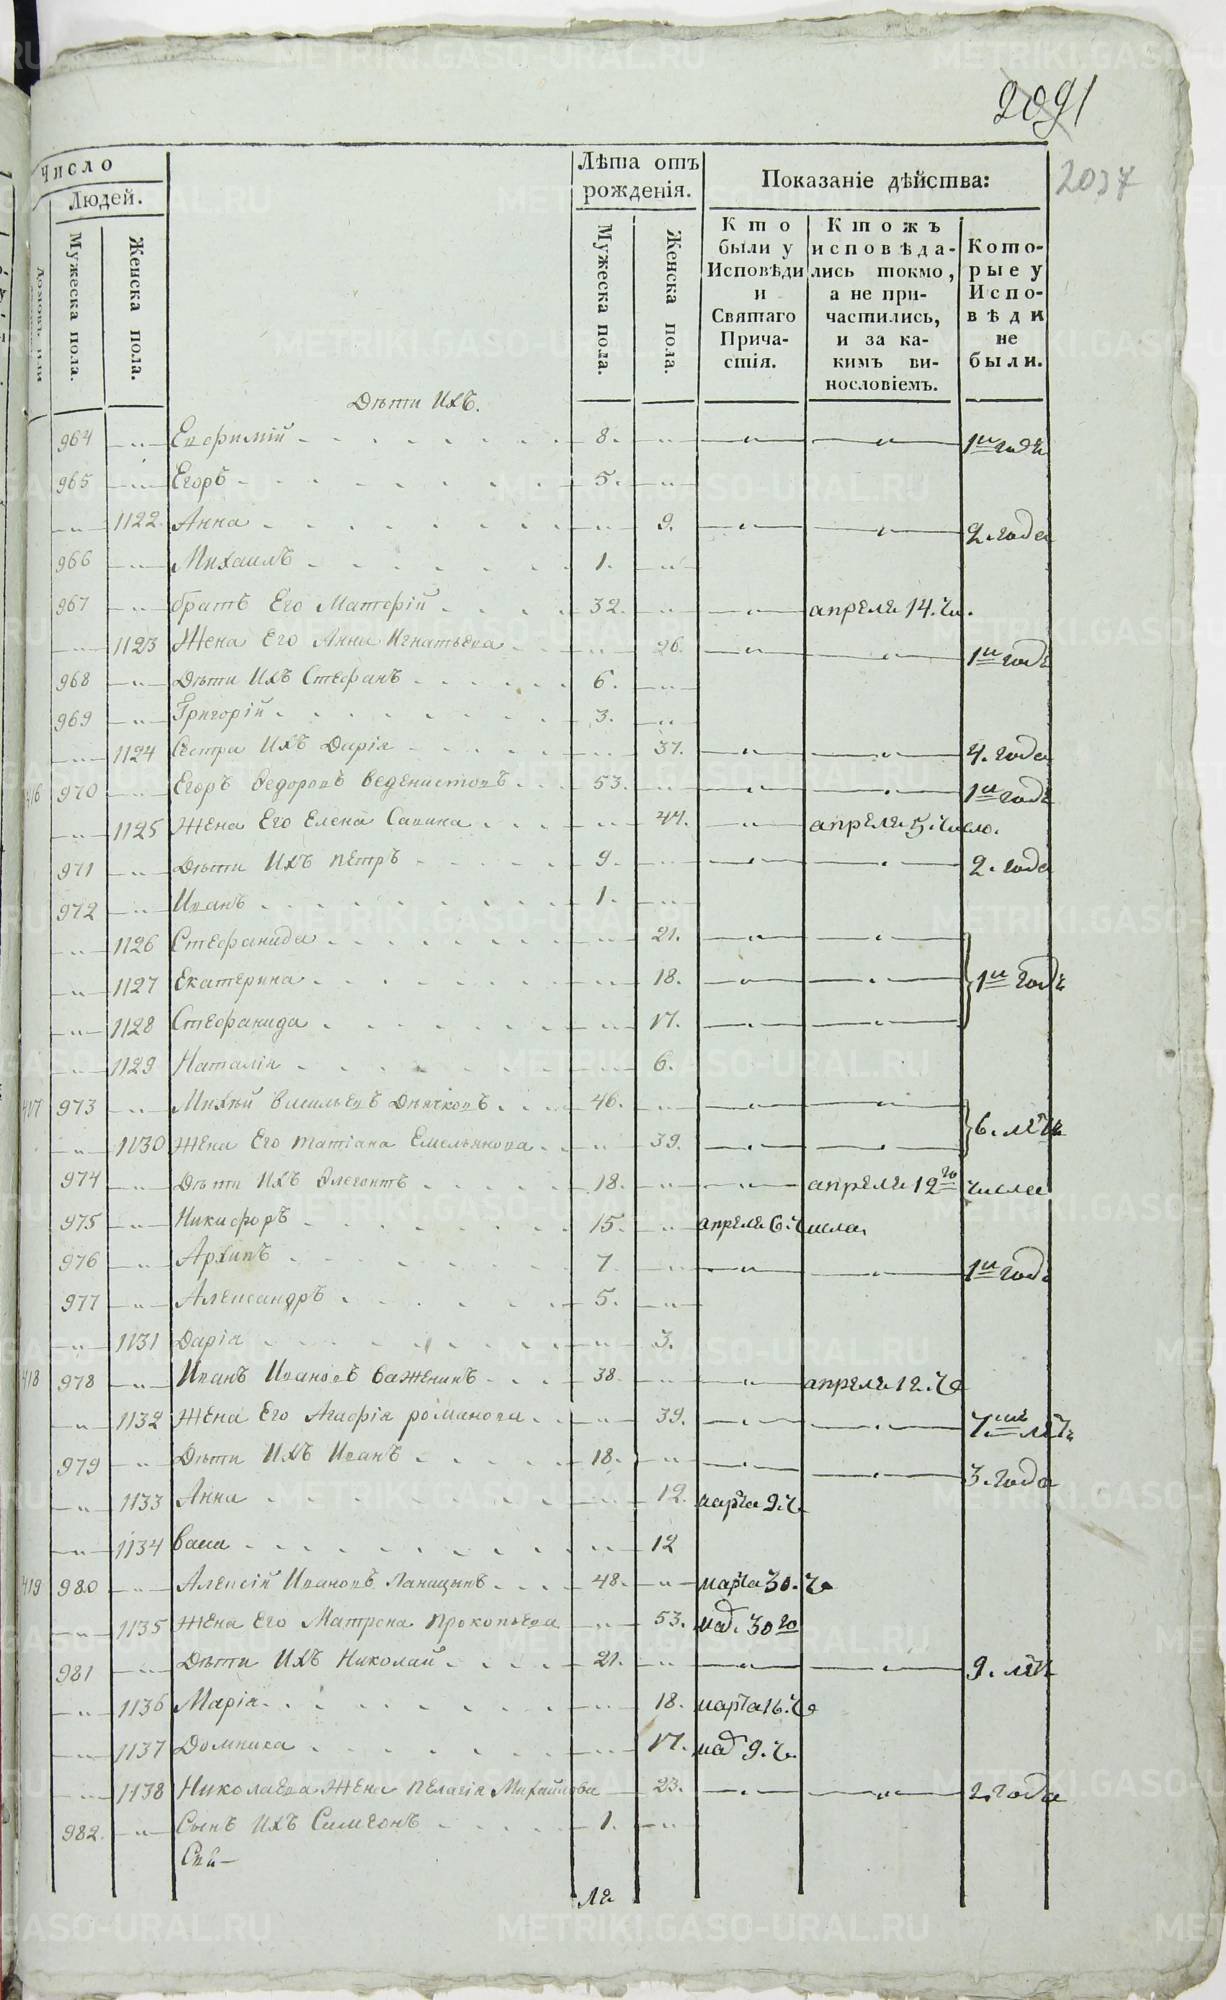 2091
2037
Число
Людей.
Лѣта отъ рожденія.
Показаніе дѣйства:
Мужеска пола.
Женска пола.
Мужеска пола.
Женска пола.
Кто были у Исповѣди и Святаго Причастія.
Ктожъ исповѣдались токмо, а не причастились, и за какимъ винословіемъ.
Которые у Исповѣди не были.
Дѣти Ихъ.
964 Евфимій 8. 1й годъ
965 Егоръ 5.
1122 Анна 9. 2. года
966 Михаилъ 1.
967 братъ Его Матфій 32. апреля 14. чи.
1123 Жена Его Анна Игнатьева 26. 1й годъ
968 Дѣти Ихъ Стефанъ 6.
969 Григорій 3.
1124 Сестра Ихъ Дарія 37. 4. года
416 970 Егоръ Федоровъ Веденистовъ 53. 1й годъ
1125 Жена Его Елена Савина 44. апреля 5. число.
971 Дѣти Ихъ Петръ 9. 2. года
972 Иванъ 1.
1126 Стефанида 21.
1127 Екатерина 18. 1й годъ
1128 Стефанида 17.
1129 Наталія 6.
417 973 Михѣй Васильевъ Дьячковъ 46.
1130 Жена Его Татіана Емельянова 39. 6. лѣтъ
974 Дѣти Ихъ Флегонтъ 18. апреля 12го числа
975 Никифоръ 15. апреля 6. числа.
976 Архипъ 7 1й годъ
977 Александръ 5.
1131 Дарія 3.
418 978 Иванъ Ивановъ Важенинъ 38. апреля 12. ч.
1132 Жена Его Агафія романова 39. 7.мь лѣтъ
979 Дѣти Ихъ Иванъ 18. 3. года
1133 Анна 12. марта 9. ч.
1134 Васса 12
419 980 Алексій Ивановъ 48. марта 30. ч.
1135 Жена Его Матрона Прокопьева 53. 30го
981 Дѣти Ихъ Николай 21. 9. лѣтъ
1136 Марія 18. марта 16. ч.
1137 Домника 17. 9. ч.
1138 Николаева Жена Пелагія Михайлова 23. 2. года
982. Сынъ Ихъ Симеонъ 1.